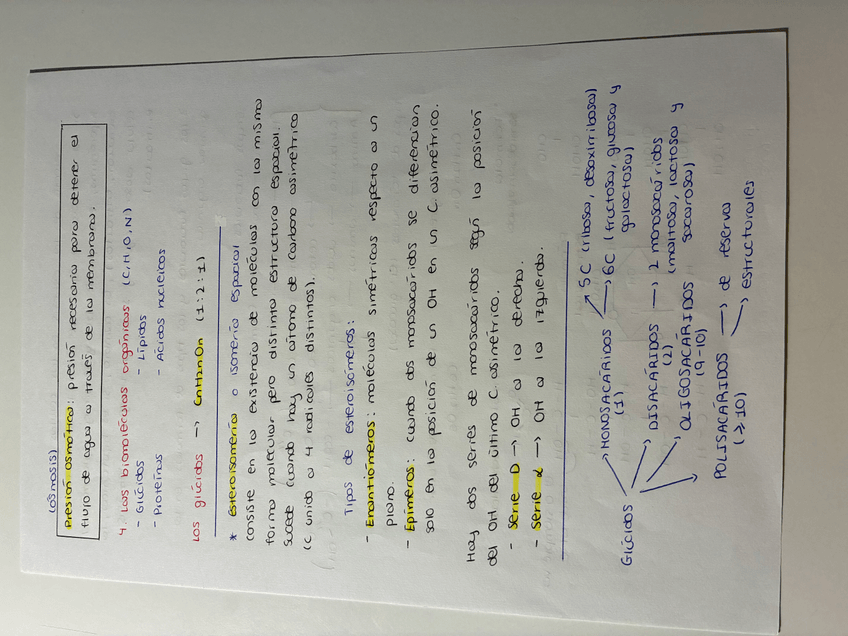 (osmosis)
Presión osmótica: presión necesaria para detener el
flujo de agua a través de la membrana.
4. Las biomoléculas orgánicas (C, H, O, N)
- Glúcidos - Lípidos
- Proteínas - Ácidos nucleicos
Los glúcidos → CnH2nOn (1:2:1)
* Esteroisomería o isomería espacial
consiste en la existencia de moléculas con la misma
forma molecular pero distinta estructura espacial.
Sucede cuando hay un átomo de carbono asimétrico
(C unido a 4 radicales distintos).
Tipos de esteroisómeros:
- Enantiómeros: moléculas simétricas respecto a un
plano.
- Epímeros: cuando dos monosacáridos se diferencian
solo en la posición de un OH en un C. asimétrico.
Hay dos series de monosacáridos según la posición
del OH del último C. asimétrico.
- Serie D → OH a la derecha.
- Serie L → OH a la izquierda.
Glúcidos
→ MONOSACÁRIDOS → 5C (ribosa, desoxirribosa)
(1) → 6C (fructosa, glucosa y
galactosa)
→ DISACÁRIDOS → 2 monosacáridos
(2) (maltosa, lactosa y
sacarosa)
→ OLIGOSACÁRIDOS
(9-10)
→ POLISACÁRIDOS → de reserva
(≥10) → estructurales